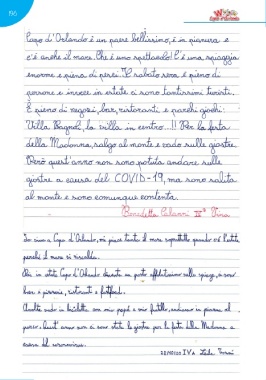 196
Capo d'Orlando è un paese bellissimo, è in pianura e
c'è anche il mare. Che è uno spettacolo! C'è una spiaggia
enorme e piena di pesci. Il sabato sera è pieno di
persone e invece in estate ci sono tantissimi turisti.
È pieno di negozi, bar, ristoranti e parchi giochi.
Villa Bagnoli, la villa in centro...!! Per la festa
della Madonna, salgo al monte e vado sulle giostre.
Però quest'anno non sono potuta andare sulle
giostre a causa del COVID-19, ma sono salita
al monte e sono comunque contenta.
Benedetta
Io vivo a Capo d'Orlando, mi piace tanto il mare soprattutto quando c'è l'estate
perché il mare si riscalda.
in estate Capo d'Orlando diventa un posto affollatissimo sulle spiagge,
bar e pizzerie, ristoranti e
in bicicletta con mio papà e mio fratello, andiamo in piazza al
parco. Quest'anno non ci sono state le giostre per la festa della Madonna a
causa del coronavirus.
IV A